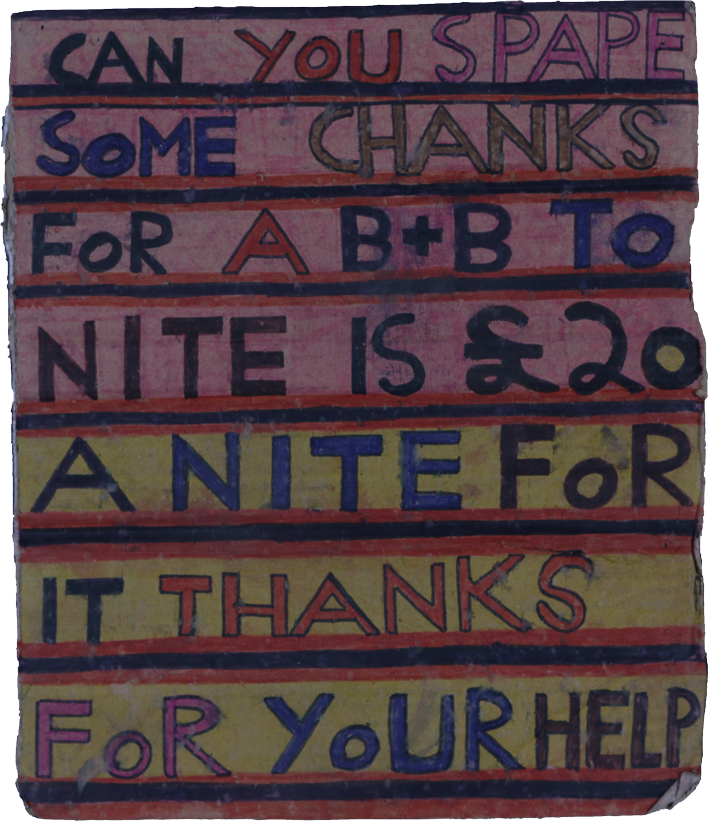 CAN YOU SPAPE
SOME CHANKS
FOR A B+B TO
NITE IS £20
A NITE FOR
IT THANKS
FOR YOUR HELP